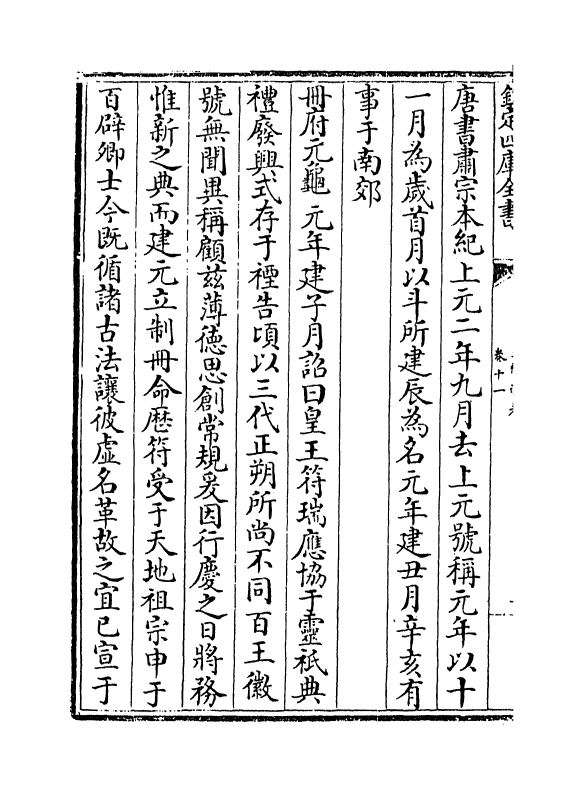 欽定四庫全書
卷十一
唐書肅宗本紀上元二年九月去上元號稱元年以十
一月為歲首月以斗所建辰為名元年建丑月辛亥有
事于南郊
冊府元龜 元年建子月詔曰皇王符瑞應協于靈祇典
禮廢興式存于禋告頃以三代正朔所尚不同百王徽
號無聞異稱顧兹薄徳思創常規爰因行慶之日將務
惟新之典而建元立制冊命厯符受于天地祖宗申于
百辟卿士今既循諸古法讓彼虚名革故之宜已宣于